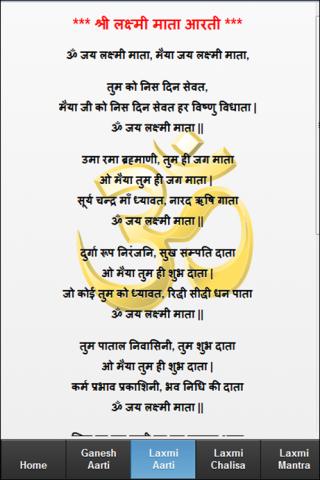 *** श्री लक्ष्मी माता आरती ***
ॐ जय लक्ष्मी माता, मैया जय लक्ष्मी माता,
तुम को निस दिन सेवत,
मैया जी को निस दिन सेवत हर विष्णु विधाता |
ॐ जय लक्ष्मी माता ||
उमा रमा ब्रह्माणी, तुम ही जग माता
ओ मैया तुम ही जग माता |
सूर्य चन्द्र माँ ध्यावत, नारद ऋषि गाता
ॐ जय लक्ष्मी माता ||
दुर्गा रूप निरंजनि, सुख सम्पति दाता
ओ मैया तुम ही शुभ दाता |
जो कोई तुम को ध्यावत, रिद्धी सीद्धी धन पाता
ॐ जय लक्ष्मी माता ||
तुम पाताल निवासिनी, तुम शुभ दाता
ओ मैया तुम ही शुभ दाता |
कर्म प्रभाव प्रकाशिनी, भव निधि की दाता
ॐ जय लक्ष्मी माता ||
Home
Ganesh Aarti
Laxmi Aarti
Laxmi Chalisa
Laxmi Mantra